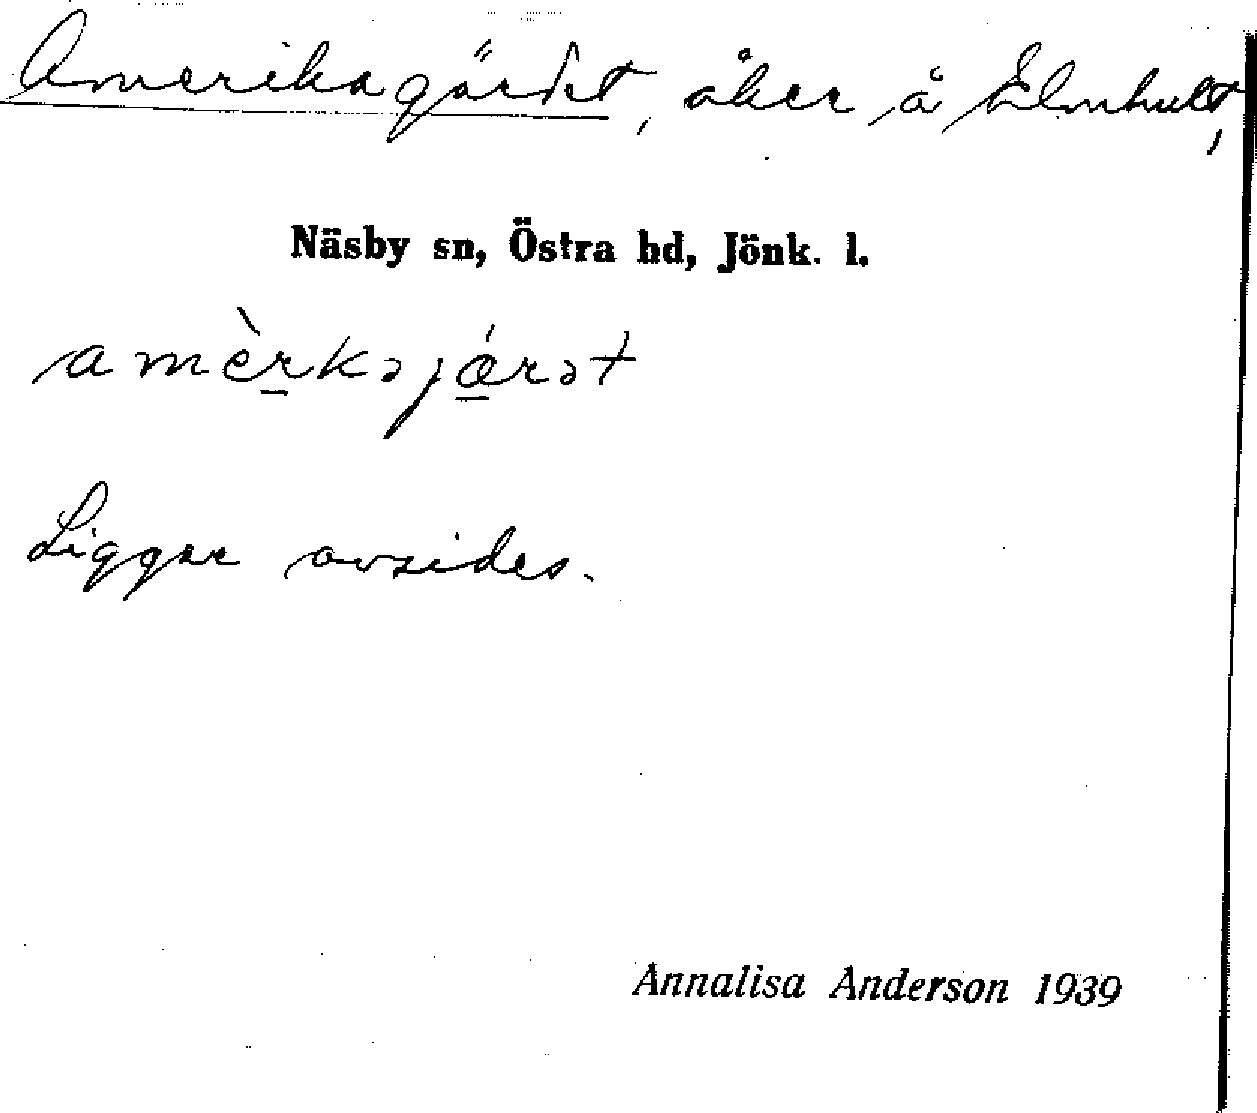 Amerikagärdet, åker å Elmhult,
Näsby sn, Östra hd, Jönk. l.
amèrkəjǽrət
Ligger avsides.
Annalisa Anderson 1939